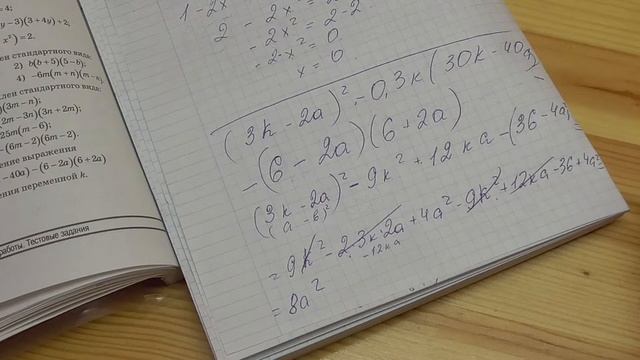 = 4;
y − 3)(3 + 4y) + 2;
x²) = 2.
лен стандартного вида:
2) b(b + 5)(5 − b);
4) −6m(m + n)(m − n).
член стандартного вида:
)(3m − n);
2m − 3n)(3n + 2m);
25m(m − 6);
− (6m − 2)(6m − 2).
ение выражения
− 40a) − (6 − 2a)(6 + 2a)
ения переменной k.
работы. Тестовые задания
1 − 2x
2 − 2x² = 2 − 2
− 2x² = 0
x = 0
(3k − 2a)² − 0,3k(30k − 40a) −
− (6 − 2a)(6 + 2a)
(3k − 2a)² − 9k² + 12ka − (36 − 4a²) =
(a − b)²
= 9k² − 2·3k·2a + 4a² − 9k² + 12ka − 36 + 4a² =
− 12ka
= 8a²